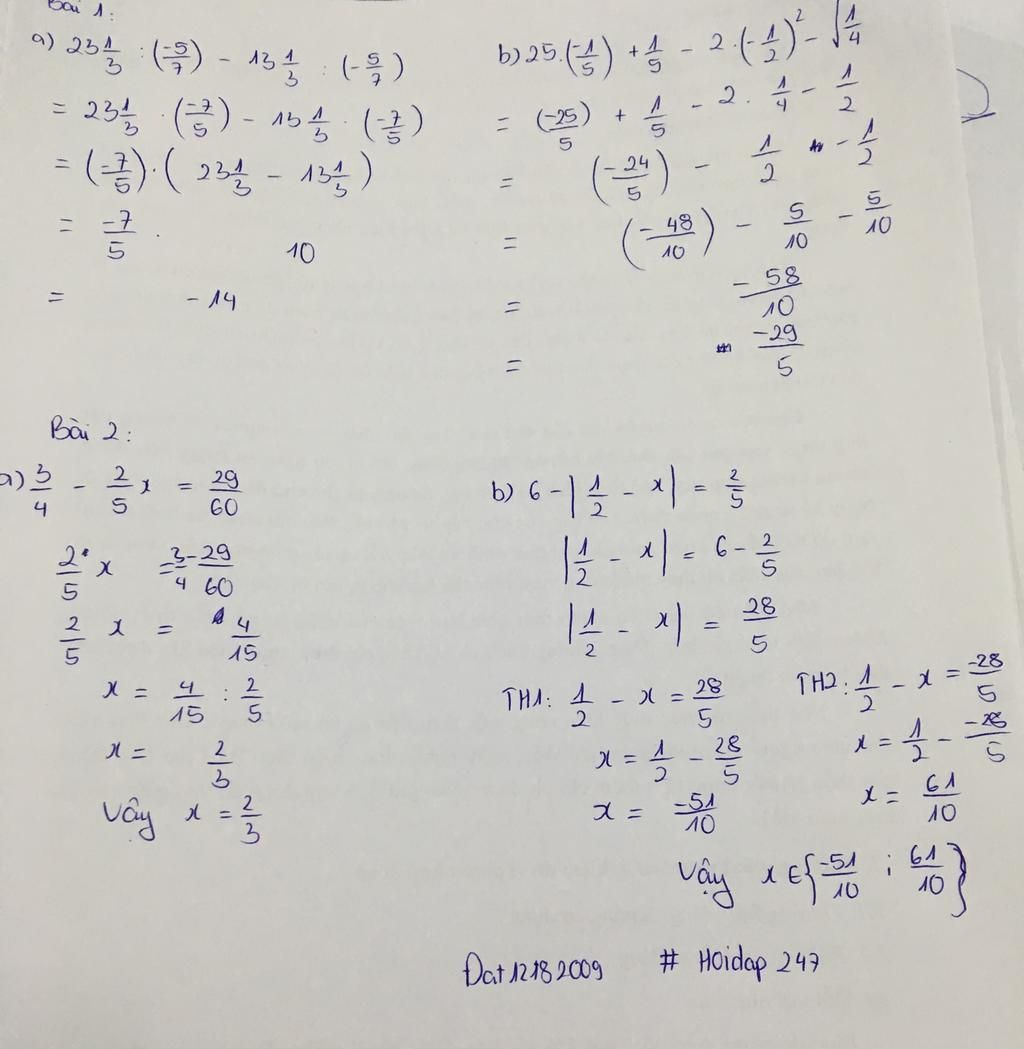 Bài 1:
a) 23 1/3 : (-5/7) - 13 1/3 : (-5/7)
= 23 1/3 · (-7/5) - 13 1/3 · (-7/5)
= (-7/5) · ( 23 1/3 - 13 1/3 )
= -7/5 · 10
= -14
b) 25 · (-1/5) + 1/5 - 2 · (-1/2)² - √1/4
= (-25/5) + 1/5 - 2 · 1/4 - 1/2
= (-24/5) - 1/2 - 1/2
= (-48/10) - 5/10 - 5/10
= -58/10
= -29/5
Bài 2:
a) 3/4 - 2/5 x = 29/60
2/5 x = 3/4 - 29/60
2/5 x = 4/15
x = 4/15 : 2/5
x = 2/3
Vậy x = 2/3
b) 6 - |1/2 - x| = 2/5
|1/2 - x| = 6 - 2/5
|1/2 - x| = 28/5
TH1: 1/2 - x = 28/5
x = 1/2 - 28/5
x = -51/10
TH2: 1/2 - x = -28/5
x = 1/2 - -28/5
x = 61/10
Vậy x ∈ {-51/10 ; 61/10}
Đat12182009 # Hoidap 247